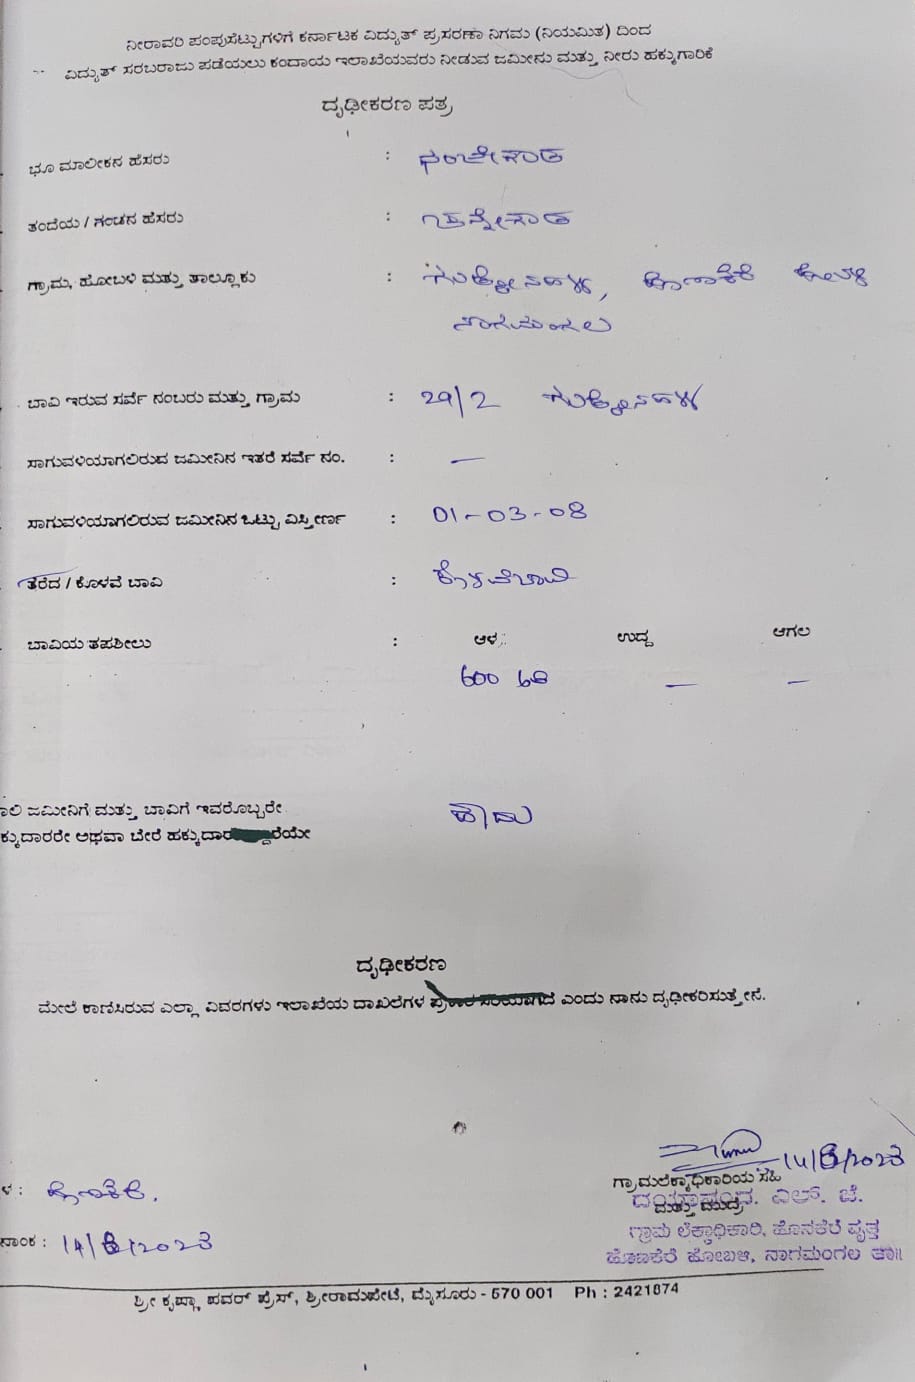 ನೀರಾವರಿ ಪಂಪುಸೆಟ್ಟುಗಳಿಗೆ ಕರ್ನಾಟಕ ವಿದ್ಯುತ್ ಪ್ರಸರಣಾ ನಿಗಮ (ನಿಯಮಿತ) ದಿಂದ
ವಿದ್ಯುತ್ ಸರಬರಾಜು ಪಡೆಯಲು ಕಂದಾಯ ಇಲಾಖೆಯವರು ನೀಡುವ ಜಮೀನು ಮತ್ತು ನೀರು ಹಕ್ಕುಗಾರಿಕೆ
ದೃಢೀಕರಣ ಪತ್ರ
ಭೂ ಮಾಲೀಕನ ಹೆಸರು : ನಂಜೇಗೌಡ
ತಂದೆಯ / ಗಂಡನ ಹೆಸರು :
ಗ್ರಾಮ, ಹೋಬಳಿ ಮತ್ತು ತಾಲ್ಲೂಕು : ಹೊಣಕೆರೆ ಹೋಬಳಿ
ನಾಗಮಂಗಲ
ಬಾವಿ ಇರುವ ಸರ್ವೆ ನಂಬರು ಮತ್ತು ಗ್ರಾಮ : 29/2
ಸಾಗುವಳಿಯಾಗಲಿರುವ ಜಮೀನಿನ ಇತರೆ ಸರ್ವೆ ನಂ. : —
ಸಾಗುವಳಿಯಾಗಲಿರುವ ಜಮೀನಿನ ಒಟ್ಟು ವಿಸ್ತೀರ್ಣ : 01-03-08
ತೆರೆದ / ಕೊಳವೆ ಬಾವಿ : ಕೊಳವೆಬಾವಿ
ಬಾವಿಯ ತಪಶೀಲು : ಆಳ ಉದ್ದ ಆಗಲ
600 ಅಡಿ — —
ಜಮೀನಿಗೆ ಮತ್ತು ಬಾವಿಗೆ ಇವರೊಬ್ಬರೇ ಹೌದು
ಕ್ಕುದಾರರೇ ಅಥವಾ ಬೇರೆ ಹಕ್ಕುದಾರ
ದೃಢೀಕರಣ
ಮೇಲೆ ಕಾಣಿಸಿರುವ ಎಲ್ಲಾ ವಿವರಗಳು ಇಲಾಖೆಯ ದಾಖಲೆಗಳ ಪ್ರಕಾರ ಸರಿಯಾಗಿದೆ ಎಂದು ನಾನು ದೃಢೀಕರಿಸುತ್ತೇನೆ.
14/8/2023
ಗ್ರಾಮಲೆಕ್ಕಾಧಿಕಾರಿಯ ಸಹಿ
ಮತ್ತು ಮುದ್ರೆ
ದಯಾನಂದ. ಎಲ್. ಜೆ.
ಗ್ರಾಮ ಲೆಕ್ಕಾಧಿಕಾರಿ, ಹೊನಕೆರೆ ವೃತ್ತ
ಹೊಣಕೆರೆ ಹೋಬಳಿ, ನಾಗಮಂಗಲ ತಾ||
ಳ : ಹೊಣಕೆರೆ.
ನಾಂಕ : 14/8/2023
ಶ್ರೀ ಕೃಷ್ಣಾ ಪವರ್ ಪ್ರೆಸ್, ಶ್ರೀರಾಮಪೇಟೆ, ಮೈಸೂರು - 570 001 Ph : 2421874